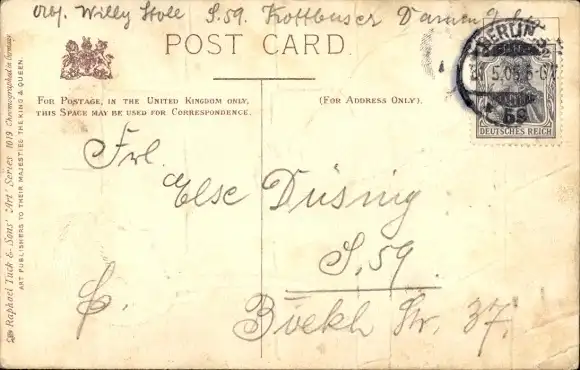 Abs. Willy Stoll S.59. Kottbuser Damm 9
POST CARD.
FOR POSTAGE, IN THE UNITED KINGDOM ONLY,
THIS SPACE MAY BE USED FOR CORRESPONDENCE.
(FOR ADDRESS ONLY).
BERLIN
59
DEUTSCHES REICH
Frl.
Else Düsing
S. 59.
Böckh Str. 37.
Raphael Tuck & Sons' "Art" Series 1019. Chromographed in Germany
ART PUBLISHERS TO THEIR MAJESTIES THE KING & QUEEN.